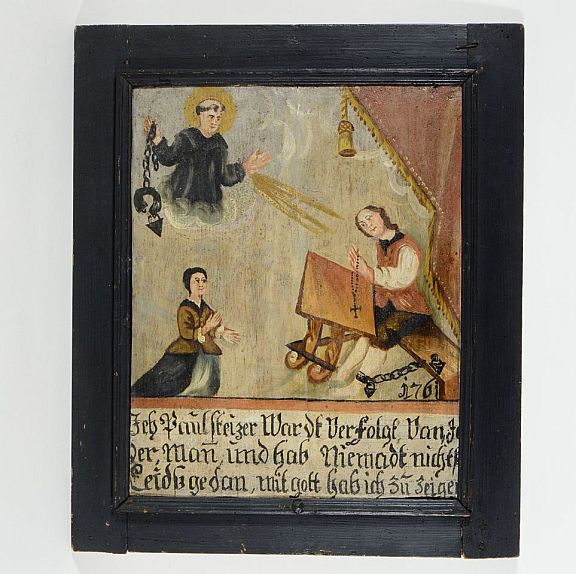 1761
Ich Paul steizer Wardt Verfolgt Van Je
der Mañ, und hab Niemadt nichtß
Leidß gedan, mit gott hab ich Zu Zeigen